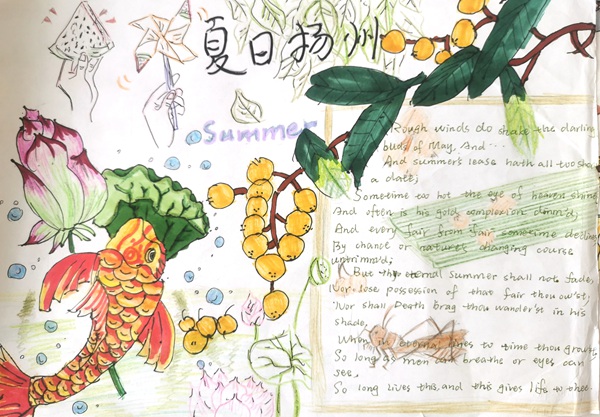 夏日扬州
Summer
Rough winds do shake the darling
buds of May, And...
And summer's lease hath all too sho
a date;
Sometime too hot the eye of heaven shine
And often is his gold complexion dimm'd;
And every fair from fair sometime decline
By chance or nature's changing course
untrimm'd;
But thy eternal summer shall not fade,
Nor lose possession of that fair thou ow'st;
Nor shall Death brag thou wander'st in his
shade,
When in eternal lines to time thou grow'st,
So long as men can breaths or eyes can
see,
So long lives this, and this gives life to thee.